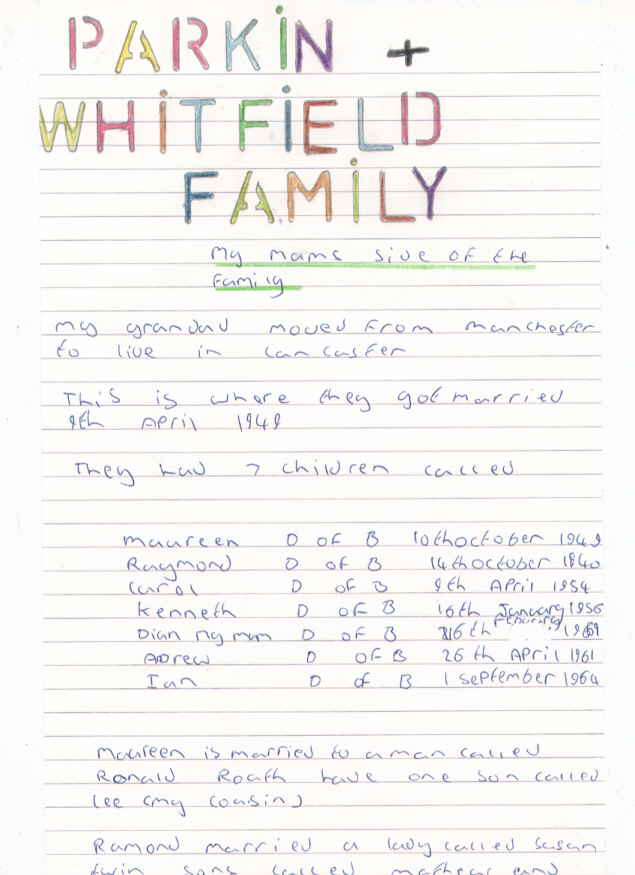 PARKIN +
WHITFIELD
FAMILY
My mams side of the
Family
my grandad moved from manchester
to live in Lancaster
This is where they got married
9th April 1949
They had 7 children called
maureen D of B 10th october 1949
Raymond D of B 14th october 1940
Carol D of B 9th April 1954
Kenneth D of B 16th January 1956
Dian my mum D of B 16th
Adrew D of B 26th April 1961
Ian D of B 1 september 1964
maureen is married to a man called
Ronald Roath have one son called
lee (my cousin)
Ramond married a lady called Susan
twin sons called